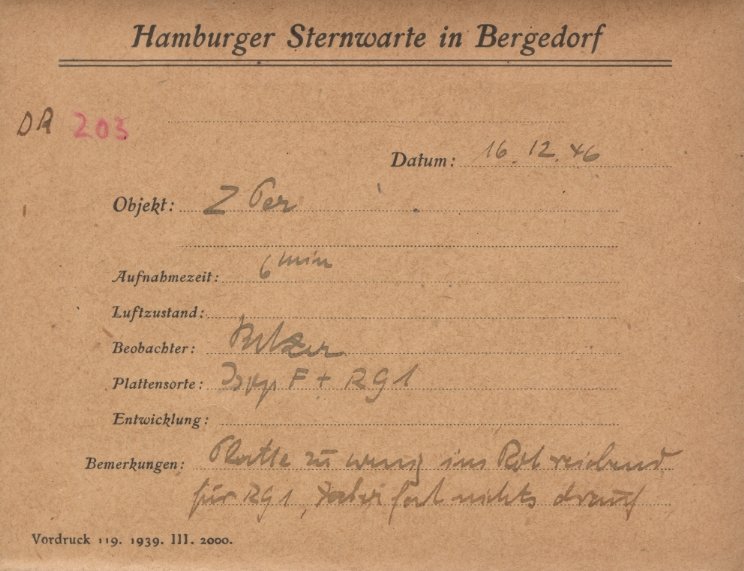 Hamburger Sternwarte in Bergedorf
DR 203
Datum: 16.12.46
Objekt: Z Per
Aufnahmezeit: 6 min
Luftzustand:
Beobachter:
Plattensorte: F + RG1
Entwicklung:
Bemerkungen: Platte zu wenig ins Rot reichend
für RG1, fast nichts drauf
Vordruck 119. 1939. III. 2000.